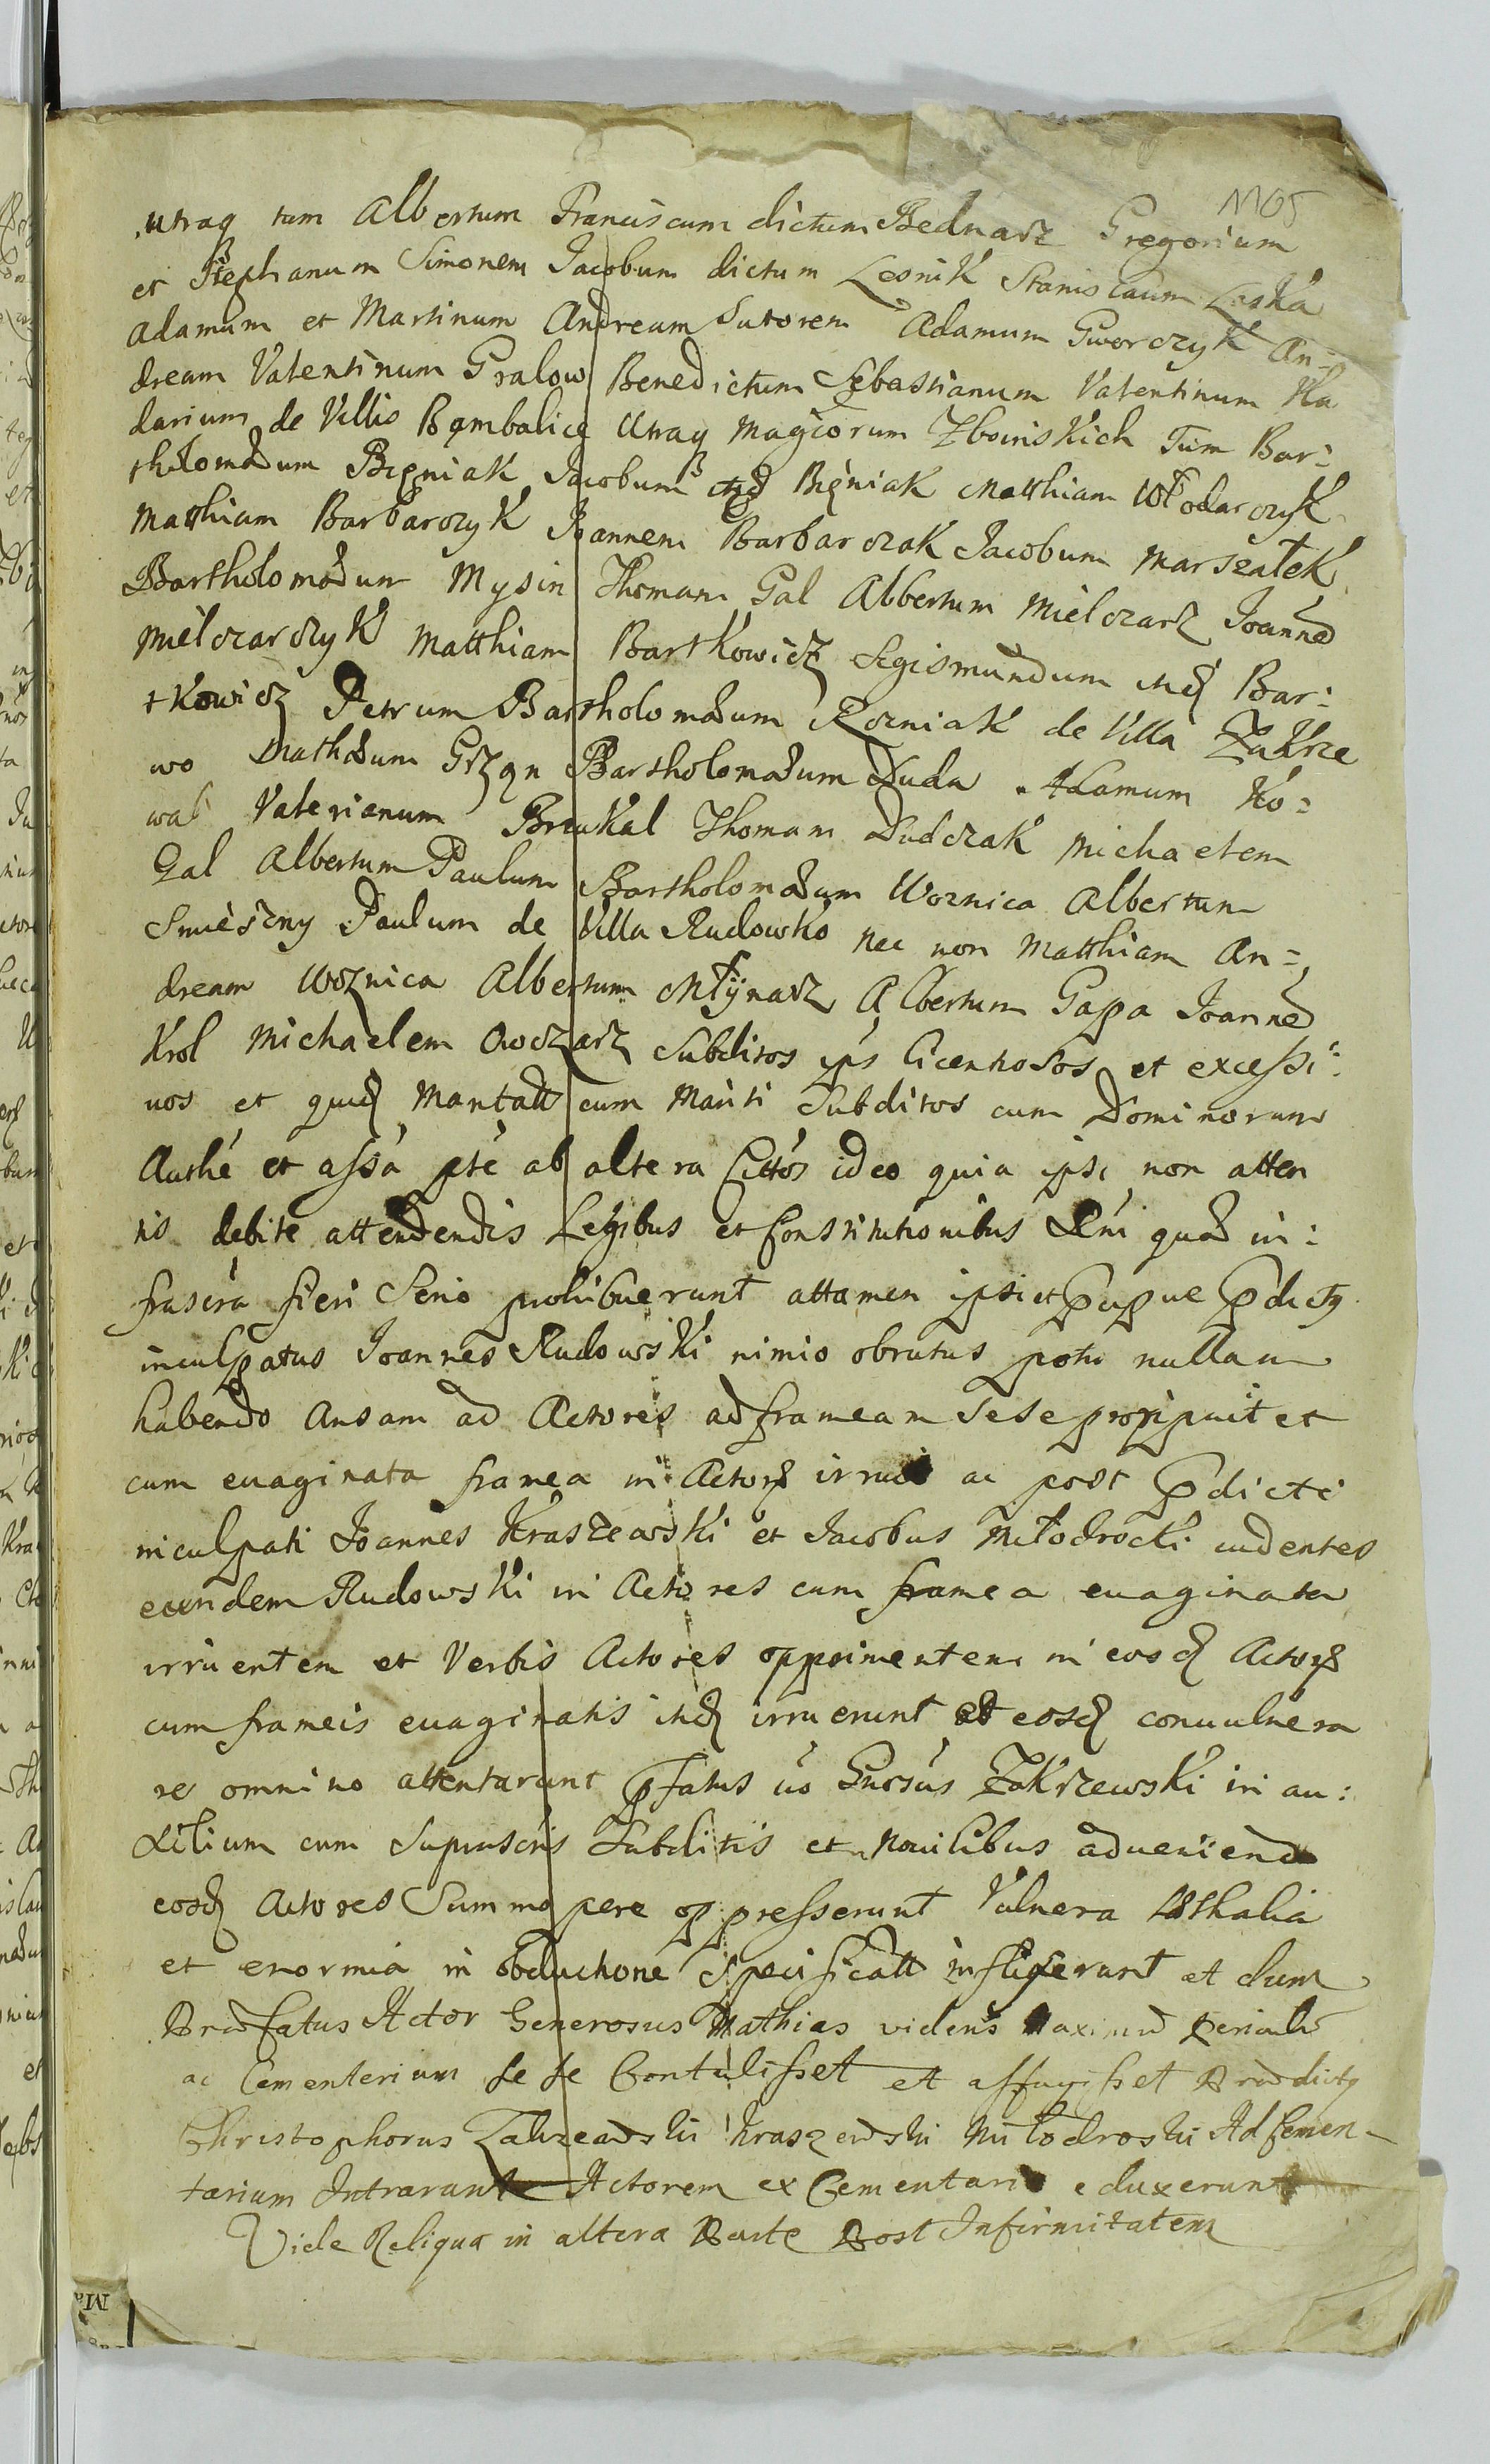 1105
utraq tum Albertum Franciscum dictum Bednarz Gregorium
et Stephanum Simonem Jacobum dictum Lesnik Stanislaum Laska
Adamum et Martinum Andream Sutorem Adamum Gworczyk An=
dream Valentinum Gralow Benedictum Sebastianum Valentinum Ha
darium de Villis Bąmbalice Utraq Magcorum Zboinskich Tum Bar=
tholomæum Bięniak Jacobum Bięniak Matthiam Włodarczyk
Matthiam Barbarczyk Joannem Barbarczak Jacobum Marszałek
Bartholomæum Mysin Thomam Gal Albertum Mielczarz Joannē
Mielczarczyk Matthiam Bartkowicz Sigismundum itid Bar=
tkowicz Petrum Bartholomæum Rozniak de Villa Zakrze
wo Mathæum Grzqn Bartholomæum Duda Adamum Ko=
wal Valerianum Thomam Dudczak Michaelem
Gal Albertum Paulum Bartholomæum Woznica Albertum
Smieszny Paulum de Villa Rudowko nec non Matthiam An=
dream Woznica Albertum Młÿnarz Albertum Gapa Joannē
Krol Michaelem Owczarz Subditos ips licentiosos et excessi=
uos et quid Maritatt cum Mariti Subditos cum Dominorum
Authé et assá pté ab altera Cittós ideo quia ipsi non atten
tis debite attendendis Legibus et Constitutionibus Rni quæ in=
frascrá fieri Serio prohibuerunt attamen ipsi et
inculpatus Joannes Rudowski nimio obrutus potu nullam
habendo Ansam ad Actores ad frameam sese proripuit et
cum euaginata framea in Actores irruit ac post pdicti
inculpati Joannes Kraszewski et Jacobus Miłodrocki uidentes
eundem Rudowski in Actores cum framea euaginata
irruentem et Verbis Actores opprimentem in eosd Actores
cum frameis euaginatis itid irruerunt et eosd conuulnera
re omnino attentarunt pfatus uó Gnosus Zakrzewski in au=
xilium cum Suprascris Subditis et Nouilibus adueniendo
eosd Actores Summopere oppresserunt Vulnera læthalia
et enormia in obductione Specificatt inflixerunt et dum
Præfatus Actor Generosus Mathias videns Maximū Periculū
ac Cementerium se se Contulisset et affugisset Prædicty
Christophorus Zakrzewski Kraszewski Miłodroski Ad Cemen-
tarium Intrarunt Actorem ex Cementario eduxerunt
Vide Reliqua in altera Parte Post Infirmitatem